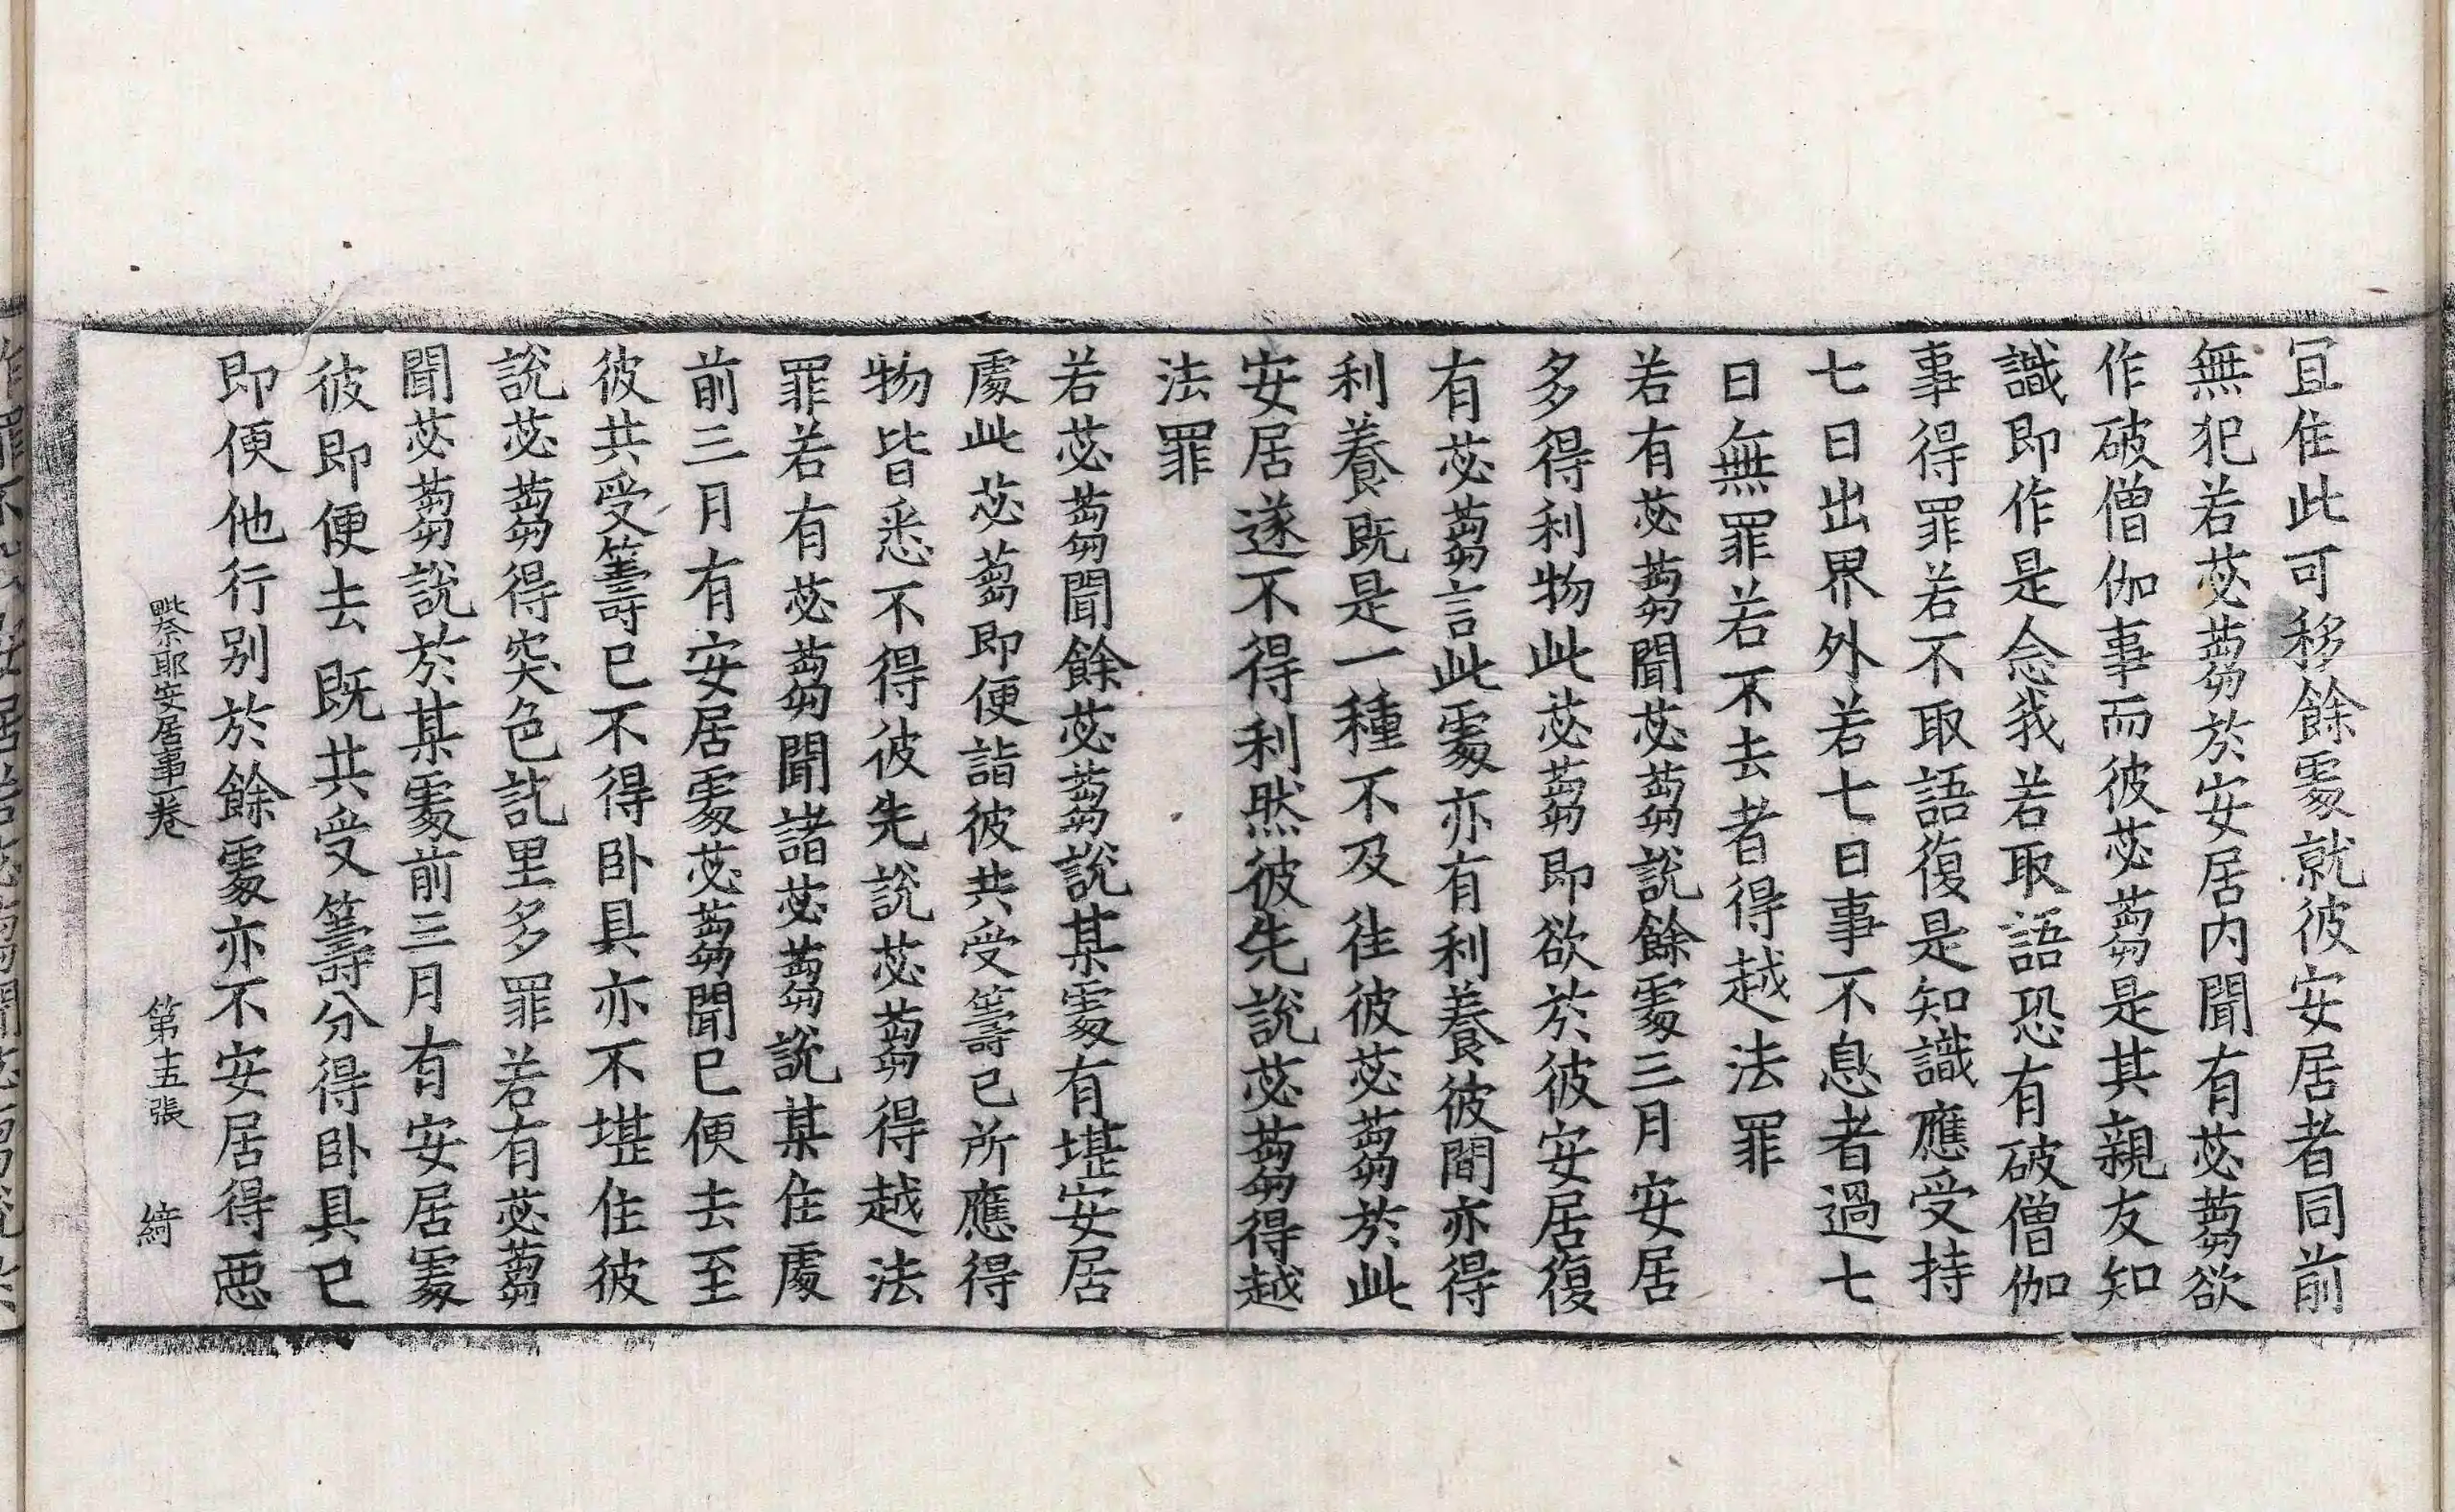 宜住此可移餘處就彼安居者同前
無犯若苾蒭於安居内聞有苾蒭欲
作破僧伽事而彼苾蒭是其親友知
識即作是念我若取語恐有破僧伽
事得罪若不取語復是知識應受持
七日出界外若七日事不息者過七
日無罪若不去者得越法罪
若有苾蒭聞苾蒭說餘處三月安居
多得利物此苾蒭即欲於彼安居復
有苾蒭言此處亦有利養彼聞亦得
利養既是一種不及往彼苾蒭於此
安居遂不得利然彼先說苾蒭得越
法罪
若苾蒭聞餘苾蒭說某處有堪安居
處此苾蒭即便詣彼共受籌已所應得
物皆悉不得彼先說苾蒭得越法
罪若有苾蒭聞諸苾蒭說某住處
前三月有安居處苾蒭聞已便去至
彼共受籌已不得卧具亦不堪住彼
說苾蒭得突色訖里多罪若有苾蒭
聞苾蒭說於某處前三月有安居處
彼即便去既共受籌分得卧具已
即便他行别於餘處亦不安居得惡
毗奈耶安居事一卷 第十五張 綺